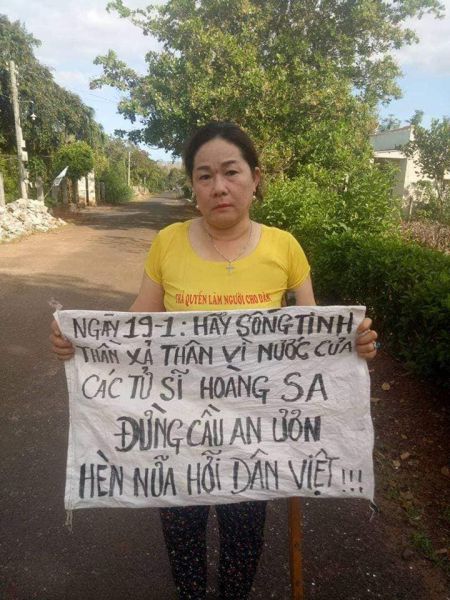 TRẢ QUYỀN LÀM NGƯỜI CHO DÂN
NGÀY 19-1: HÃY SỐNG TINH
THẦN XẢ THÂN VÌ NƯỚC CỦA
CÁC TỬ SĨ HOÀNG SA
ĐỪNG CẦU AN ƯƠN
HÈN NỮA HỠI DÂN VIỆT!!!